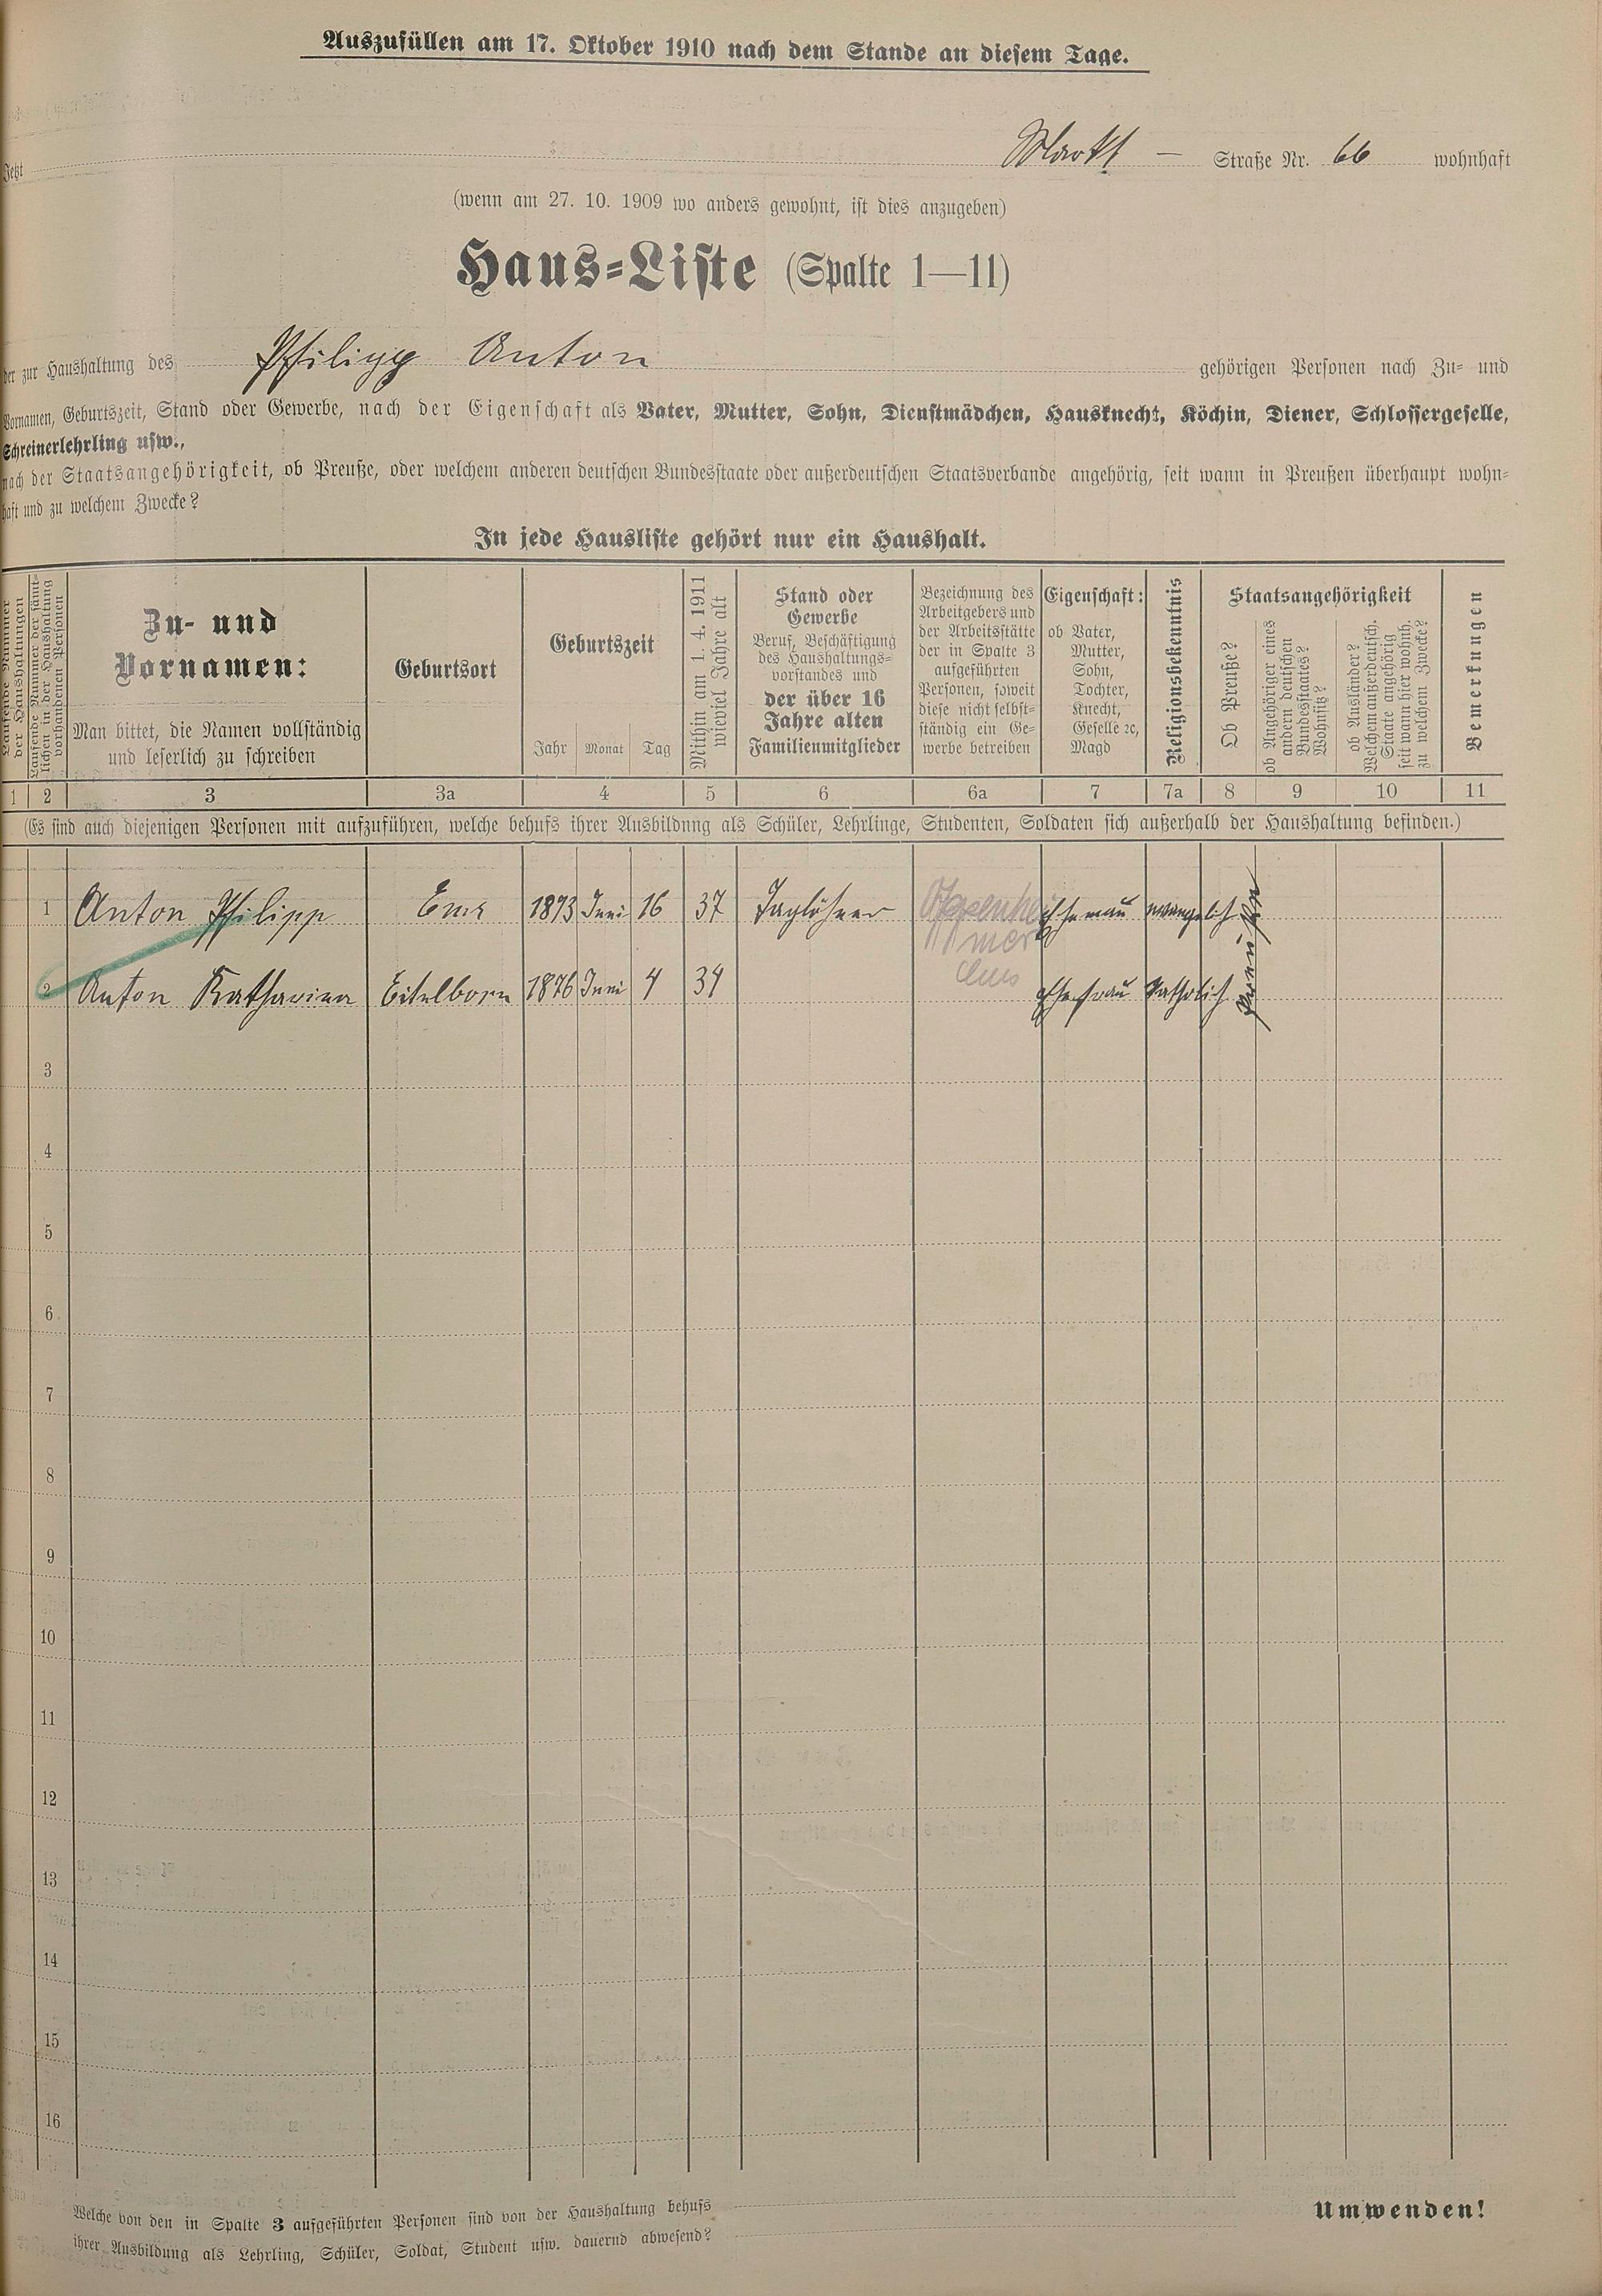 Auszufüllen am 17. Oktober 1910 nach dem Stande an diesem Tage.
Jetzt Markt – Straße Nr. 66 wohnhaft
(wenn am 27. 10. 1909 wo anders gewohnt, ist dies anzugeben)
Haus-Liste (Spalte 1—11)
der zur Haushaltung des Philipp Anton gehörigen Personen nach Zu- und
Vornamen, Geburtszeit, Stand oder Gewerbe, nach der Eigenschaft als Vater, Mutter, Sohn, Dienstmädchen, Hausknecht, Köchin, Diener, Schlossergeselle,
Schreinerlehrling usw.,
nach der Staatsangehörigkeit, ob Preuße, oder welchem anderen deutschen Bundesstaate oder außerdeutschen Staatsverbande angehörig, seit wann in Preußen überhaupt wohn-
haft und zu welchem Zwecke?
In jede Hausliste gehört nur ein Haushalt.
Laufende Nummer
der Haushaltungen
Laufende Nummer der sämt-
lichen in der Haushaltung
vorhandenen Personen
Zu- und
Vornamen:
Man bittet, die Namen vollständig
und leserlich zu schreiben
Geburtsort
Geburtszeit
Jahr Monat Tag
Mithin am 1. 4. 1911
wieviel Jahre alt
Stand oder
Gewerbe
Beruf, Beschäftigung
des Haushaltungs-
vorstandes und
der über 16
Jahre alten
Familienmitglieder
Bezeichnung des
Arbeitgebers und
der Arbeitsstätte
der in Spalte 3
aufgeführten
Personen, soweit
diese nicht selbst-
ständig ein Ge-
werbe betreiben
Eigenschaft:
ob Vater,
Mutter,
Sohn,
Tochter,
Knecht,
Geselle ꝛc,
Magd
Religionsbekenntnis
Staatsangehörigkeit
Ob Preuße?
ob Angehöriger eines
andern deutschen
Bundesstaates?
Wohnsitz?
ob Ausländer?
Welchem außerdeutsch.
Staate angehörig
seit wann hier wohnh.
zu welchem Zwecke?
Bemerkungen
1 2 3 3a 4 5 6 6a 7 7a 8 9 10 11
(Es sind auch diejenigen Personen mit aufzuführen, welche behufs ihrer Ausbildung als Schüler, Lehrlinge, Studenten, Soldaten sich außerhalb der Haushaltung befinden.)
1 Anton Philipp Ems 1873 Juni 16 37 Taglöhner Oppenheimer Ems Ehemann evangelisch Preußen
2 Anton Katharina Eitelborn 1876 Juni 4 34 Ehefrau Katholisch
3
4
5
6
7
8
9
10
11
12
13
14
15
16
Welche von den in Spalte 3 aufgeführten Personen sind von der Haushaltung behufs
ihrer Ausbildung als Lehrling, Schüler, Soldat, Student usw. dauernd abwesend?
Umwenden!